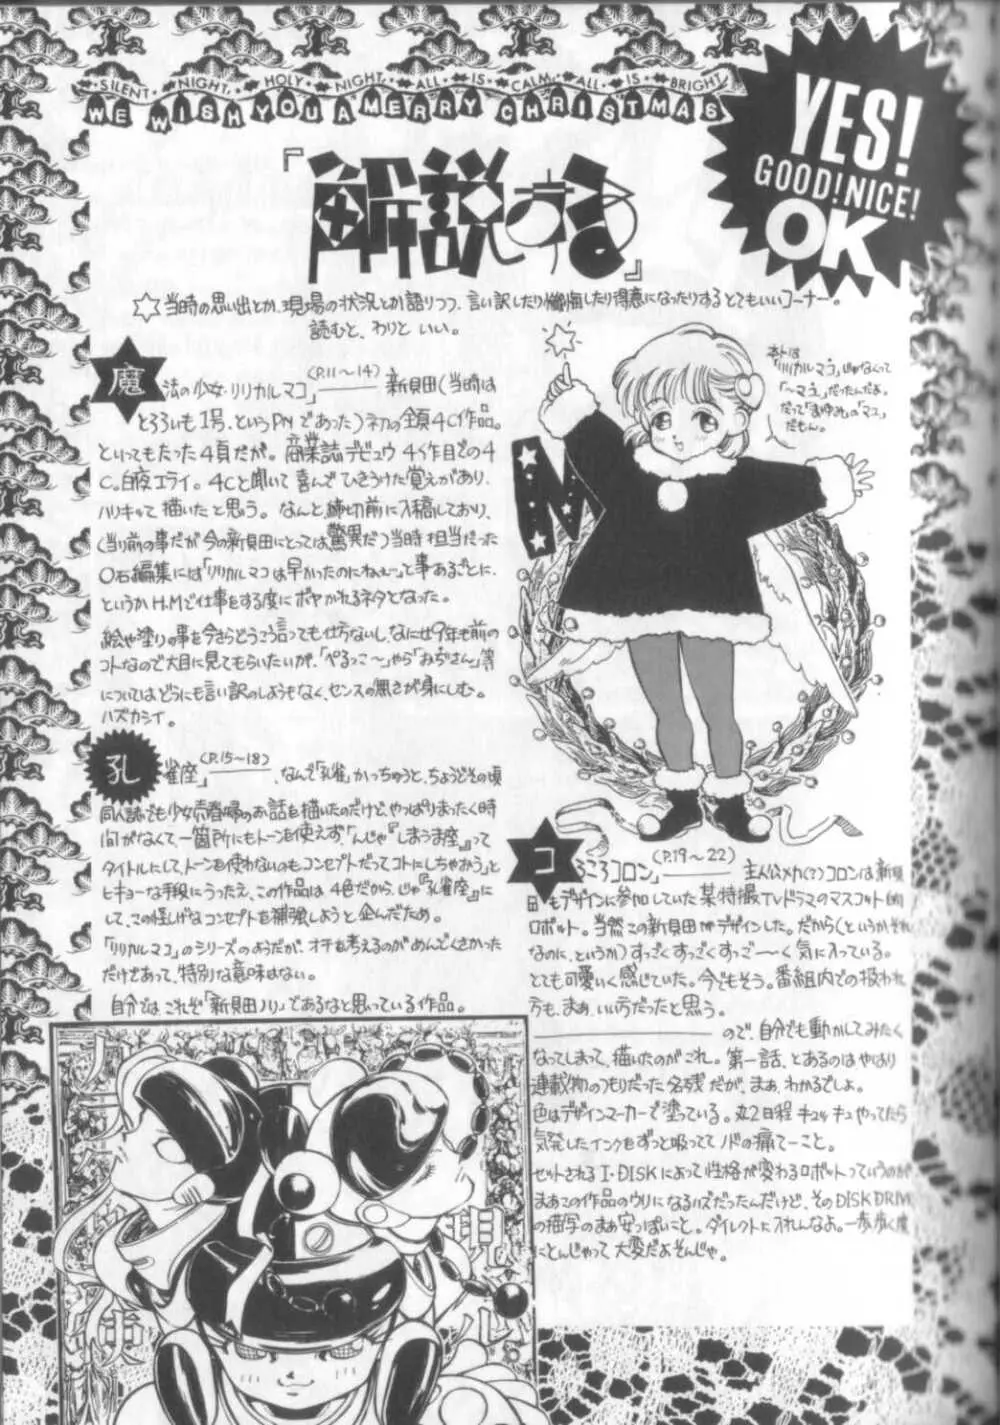 ★SILENT★NIGHT,★HOLY★NIGHT★ALL★IS★CALM,★ALL★IS★BRIGHT
WE WISH YOU A MERRY CHRISTMAS
YES!
GOOD!NICE!
OK
『解説する』
☆当時の思い出とか、現場の状況とか語りつつ、言い訳したり懺悔したり得意になったりするとてもいいコーナー。
読むと、わりと いい。
魔法の少女・リリカルマコ」(P.11〜14)── 新貝田(当時は
とろろいも1号、というPNであった)初の全頁4C作品。
といってもたった4頁だが。商業誌デビュウ4作目での4
C。白夜エライ。4Cと聞いて喜んでひきうけた覚えがあり、
ハリキッて描いたと思う。なんと、締切前に入稿しており、
(当り前の事だが今の新貝田にとっては驚異だ)当時担当だった
〇石編集には「リリカルマコは早かったのにねぇ〜」と事あるごとに、
というかH.Mで仕事をする度にボヤかれるネタとなった。
絵や塗りの事を今さらどうこう言っても仕方ないし、なにせ9年も前の
コトなので大目に見てもらいたいが、「ぺるっこ〜」やら「みぢさん」等
についてはどうにも言い訳のしようもなく、センスの無さが身にしむ。
ハズカシイ。
本トは
「リリカルマコ」じゃなくて
「〜マユ」だったんだよ。
だって「まゆみ」の「マユ」
だもん。
M
孔雀座」(P.15〜18)── 、なんで「孔雀」かっちゅうと、ちょうどその頃
同人誌でも少女売春婦のお話を描いたのだけど、やっぱりまったく時
間がなくて、一箇所にもトーンを使えず、「んじゃ『しまうま座』って
タイトルにして、トーンを使わないのもコンセプトだってコトにしちゃおう」と
ヒキョーな手段にうったえ、この作品は4色だから、じゃ『孔雀座』に
して、この怪しげなコンセプトを補強しようと企んだため。
「リリカルマコ」のシリーズのようだが、オチを考えるのがめんどくさかった
だけであって、特別な意味はない。
自分では、これぞ「新貝田ノリ」であるなと思っている作品。
コろころコロン」(P.19〜22)── 主人公メカ(?)コロンは新貝
田もデザインに参加していた某特撮TVドラマのマスコット的
ロボット。当然この新貝田がデザインした。だから(というか、それ
なのに、というか)すっごくすっごくすっご──く気に入っている。
とても可愛いく感じていた。今でもそう。番組内での扱われ
方も、まぁ、いい方だったと思う。
── ので、自分でも動かしてみたく
なってしまって、描いたのがこれ。第一話、とあるのはやはり
連載物のつもりだった名残だが、まぁ、わかるでしょ。
色はデザインマーカーで塗っている。丸2日程キュッキュやってたら
気発したインクをずっと吸っててノドの痛てーこと。
セットされるI-DISKによって性格が変わるロボットっていうのが
まあこの作品のウリになるハズだったんだけど、そのDISK DRIVE
の描写のまぁ安っぽいこと。ダイレクトに入れんなよ。一歩歩く度
にとんじゃって大変だよそんじゃ。
現
使